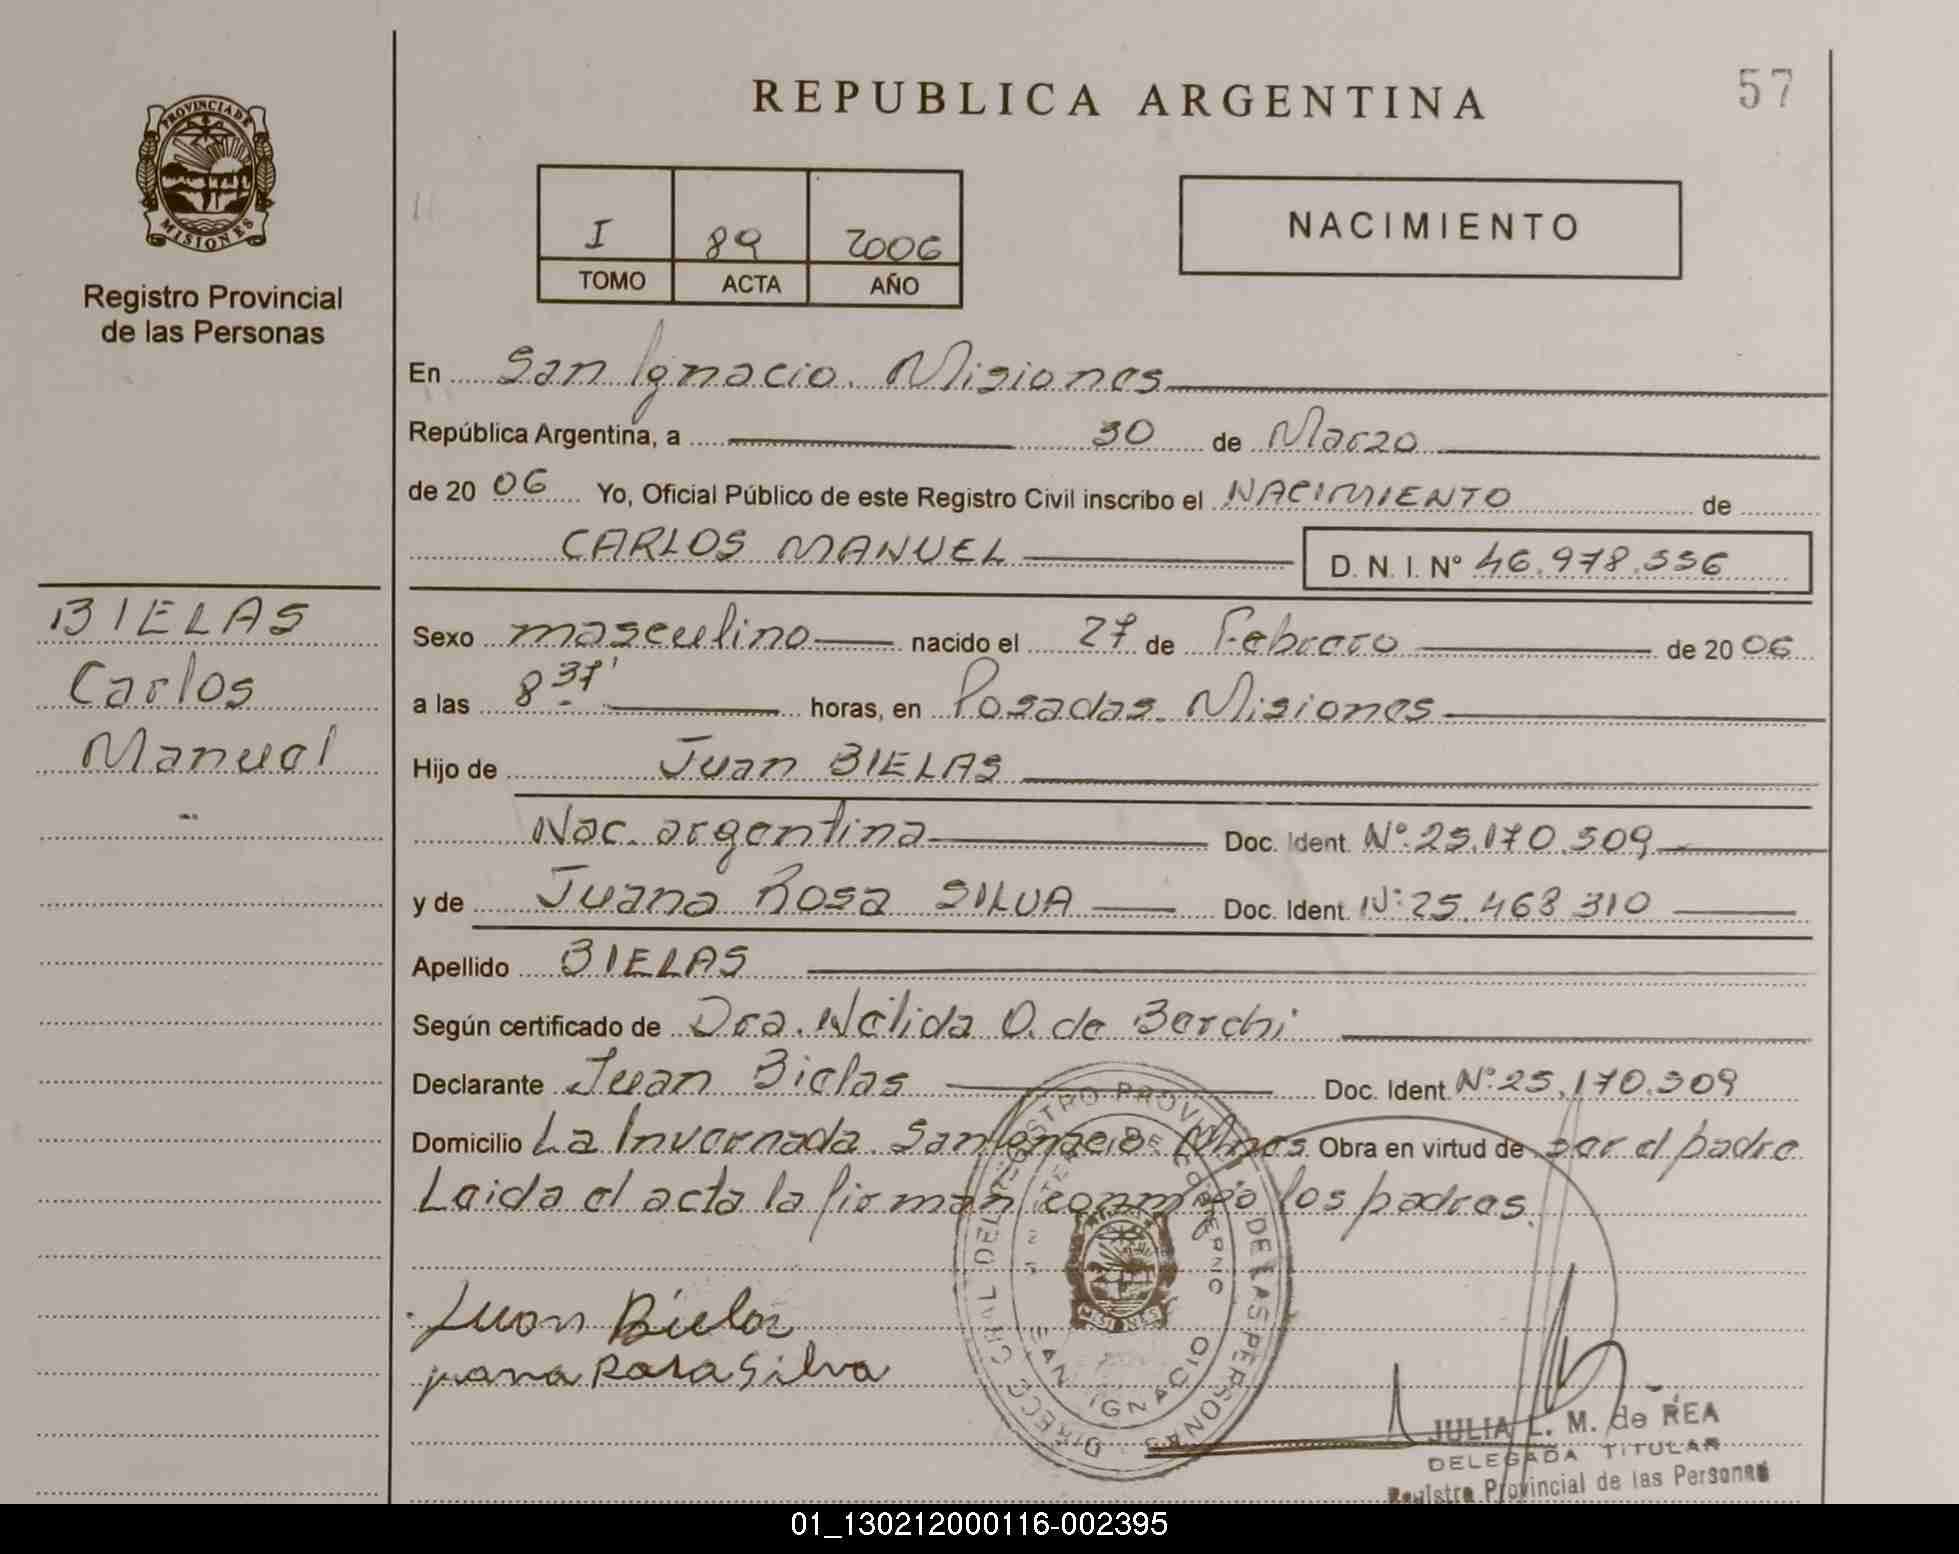 57
REPUBLICA ARGENTINA
PROVINCIA DE
MISIONES
Registro Provincial
de las Personas
I 89 2006
TOMO ACTA AÑO
NACIMIENTO
En San Ignacio. Misiones
República Argentina, a 30 de Marzo
de 2006 Yo, Oficial Público de este Registro Civil inscribo el NACIMIENTO de
CARLOS MANUEL D. N. I. Nº 46.978.556
BIELAS
Carlos
Manuel
Sexo masculino nacido el 27 de Febrero de 2006
a las 8 37' horas, en Posadas. Misiones
Hijo de Juan BIELAS
Nac. argentina Doc. Ident. Nº: 25.170.509
y de Juana Rosa SILVA Doc. Ident. Nº: 25.468 310
Apellido BIELAS
Según certificado de Dra. Nélida O. de Berchi
Declarante Juan Bielas Doc. Ident. Nº: 25.170.509
Domicilio La Invernada. San Ignacio Mnes. Obra en virtud de ser el padre
Leida el acta la firman conmigo los padres.
Juan Bielas
juana Rosa Silva
DIRECC GRAL DEL REGISTRO PROVINCIAL DE LAS PERSONAS
DE GOBIERNO
SAN IGNACIO
MISIONES
JULIA L. M. de REA
DELEGADA TITULAR
Registro Provincial de las Personas
01_130212000116-002395